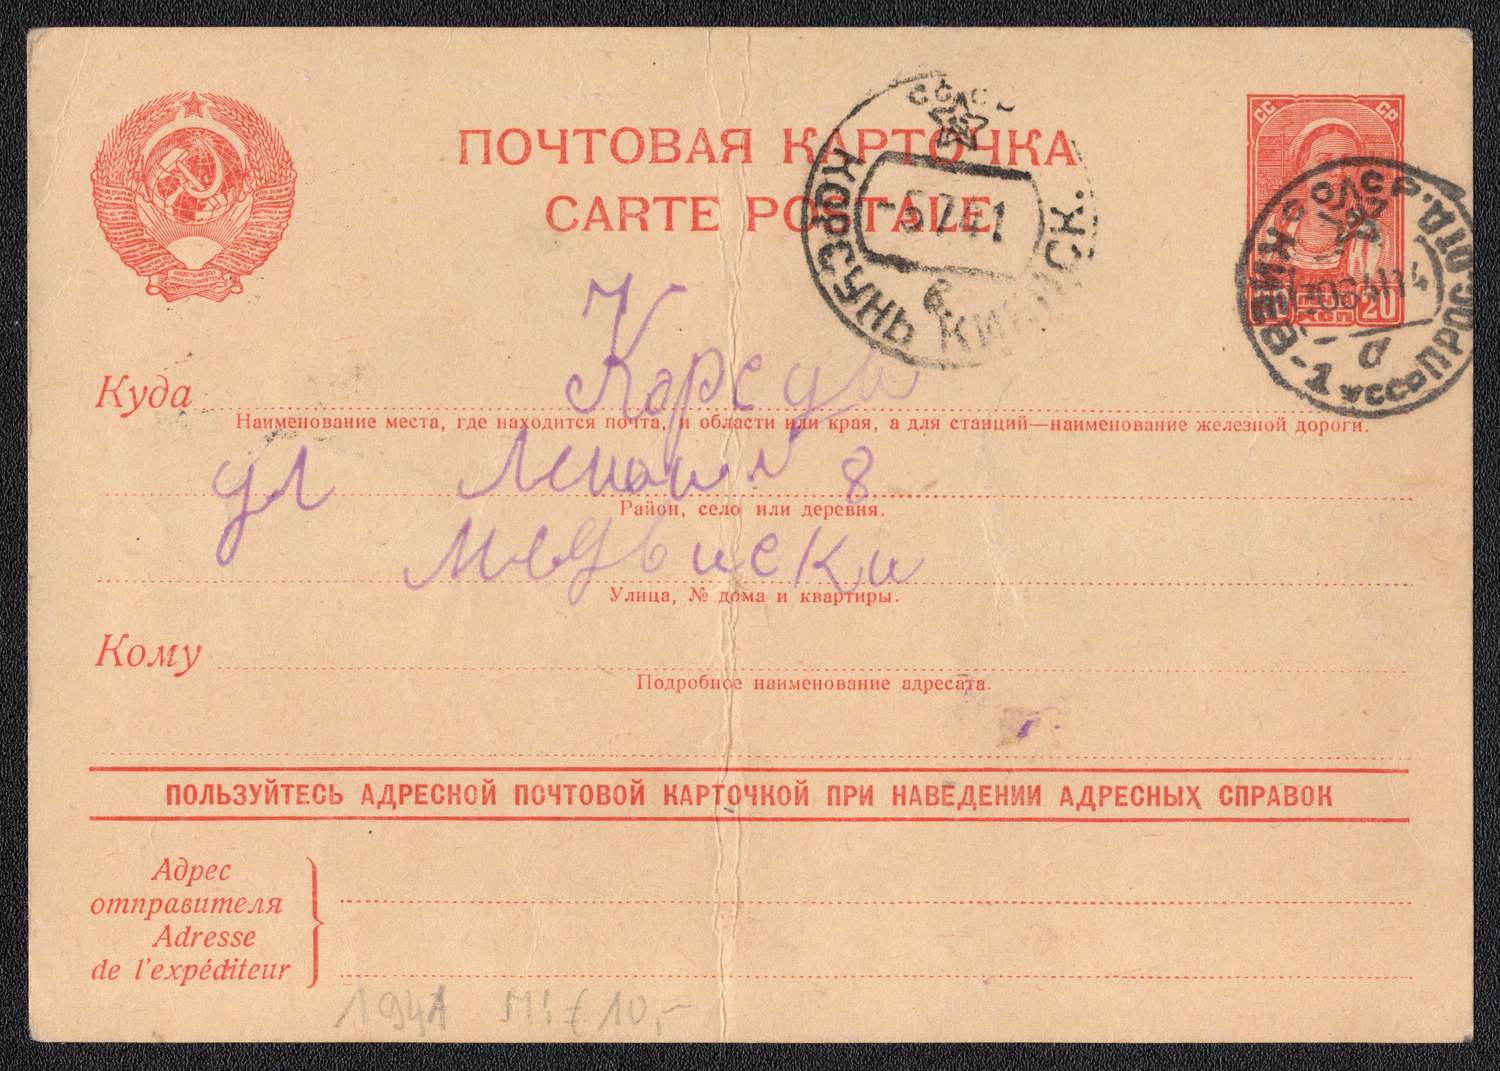 СС СР
ПОЧТОВАЯ КАРТОЧКА
CARTE POSTALE
-5.7.41
КИЕВ-1
20
Куда
Наименование места, где находится почта, и области или края, а для станций—наименование железной дороги.
ул Ленина 8
Район, село или деревня.
Улица, № дома и квартиры.
Кому
Подробное наименование адресата.
ПОЛЬЗУЙТЕСЬ АДРЕСНОЙ ПОЧТОВОЙ КАРТОЧКОЙ ПРИ НАВЕДЕНИИ АДРЕСНЫХ СПРАВОК
Адрес
отправителя
Adresse
de l'expéditeur
1941 Mi € 10,-